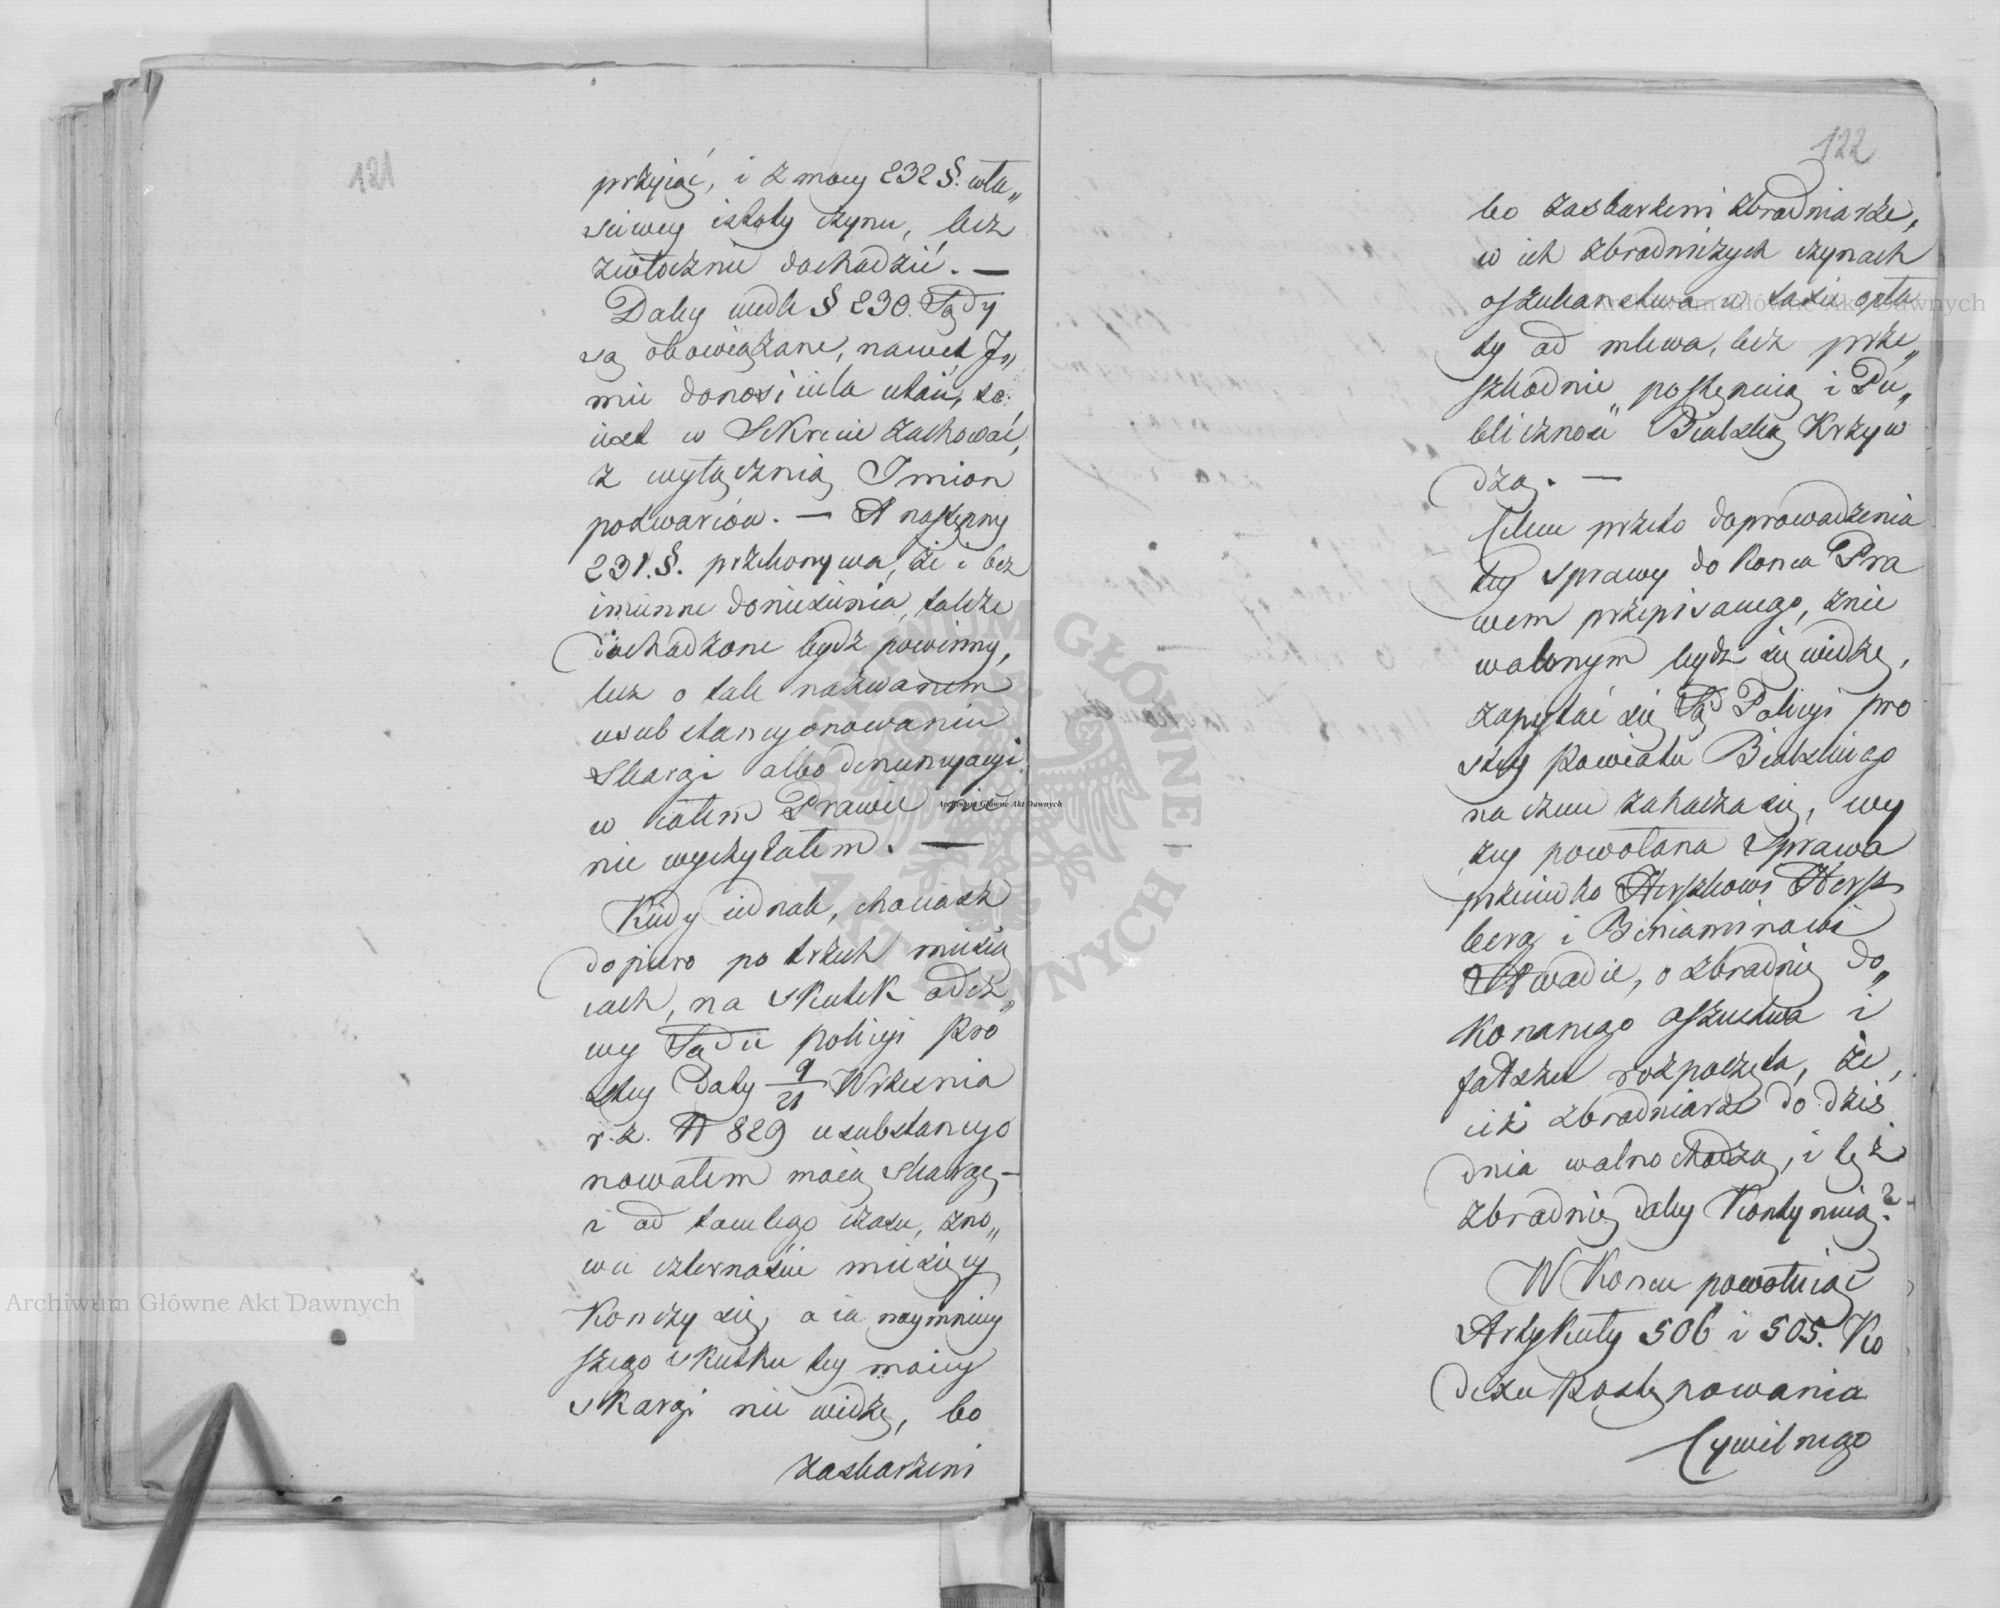 121
przyiąć, i z mocy 232 §. wła„
sciwey istoty czynu, bez
zwłocznie dochodzić. —
Daley wedle § 230. Sądy
są obowiązane, nawet Ji„
mie donosiciela utaić, to:
iest w Sekrecie zachować,
z wyłącznią Imion
potwarców. — A następny
231. §. przekonywa, że i bez
imienne doniesienia, także
dochodzone bydź powinny,
lecz o tak nazwanem
usubstancyonowaniu
Skargi albo denuncyacyi
w całem Prawie nic
nie wyczytałem. —
Kiedy iednak, chociasz
dopiero po trzech miesią
cach, na skutek odez„
wy Sądu policyi Pro
stey daty 9/21 Wrzesnia
r. z. N 829 usubstancyo
nowałem moią skargę —
i od tamtego czasu, zno„
wu czternaście miesięcy
Konczy się, a ia naymniey
szego skutku tey moiey
skargi nie widzę, bo
zaskarzeni
122
bo zaskarzeni zbrodniarze,
w ich zbrodniczych czynach
oszukanstwa w taxie opła
ty od mlewa, bez prze„
szkodnie postępuią i Pu„
bliczność Bialską Krzyw
dzą. —
Celem przeto doprowadzenia
tey sprawy do Konca Pra
wem przepisanego, znie
wolonym bydź się widzę,
zapytać się Sąd Policyi pro
stey Powiatu Bialskiego
na czem zahacza się, wy
zey powołana Sprawa
przeciwko Herszkowi Hersz
berg i Beniaminowi
Wadie, o zbrodnię do„
Konanego oszustwa i
fałszu rozpoczęta, że,
ciż zbrodniarze do dziś
dnia wolno chodzą, i tęż
zbrodnię daley Kontynuią?
W Koncu powołuiąc
Artykuły 506 i 505. Ko
dexu Postępowania
Cywilnego
Archiwum Główne Akt Dawnych
Archiwum Główne Akt Dawnych
Archiwum Główne Akt Dawnych
ARCHIWUM GŁÓWNE AKT DAWNYCH